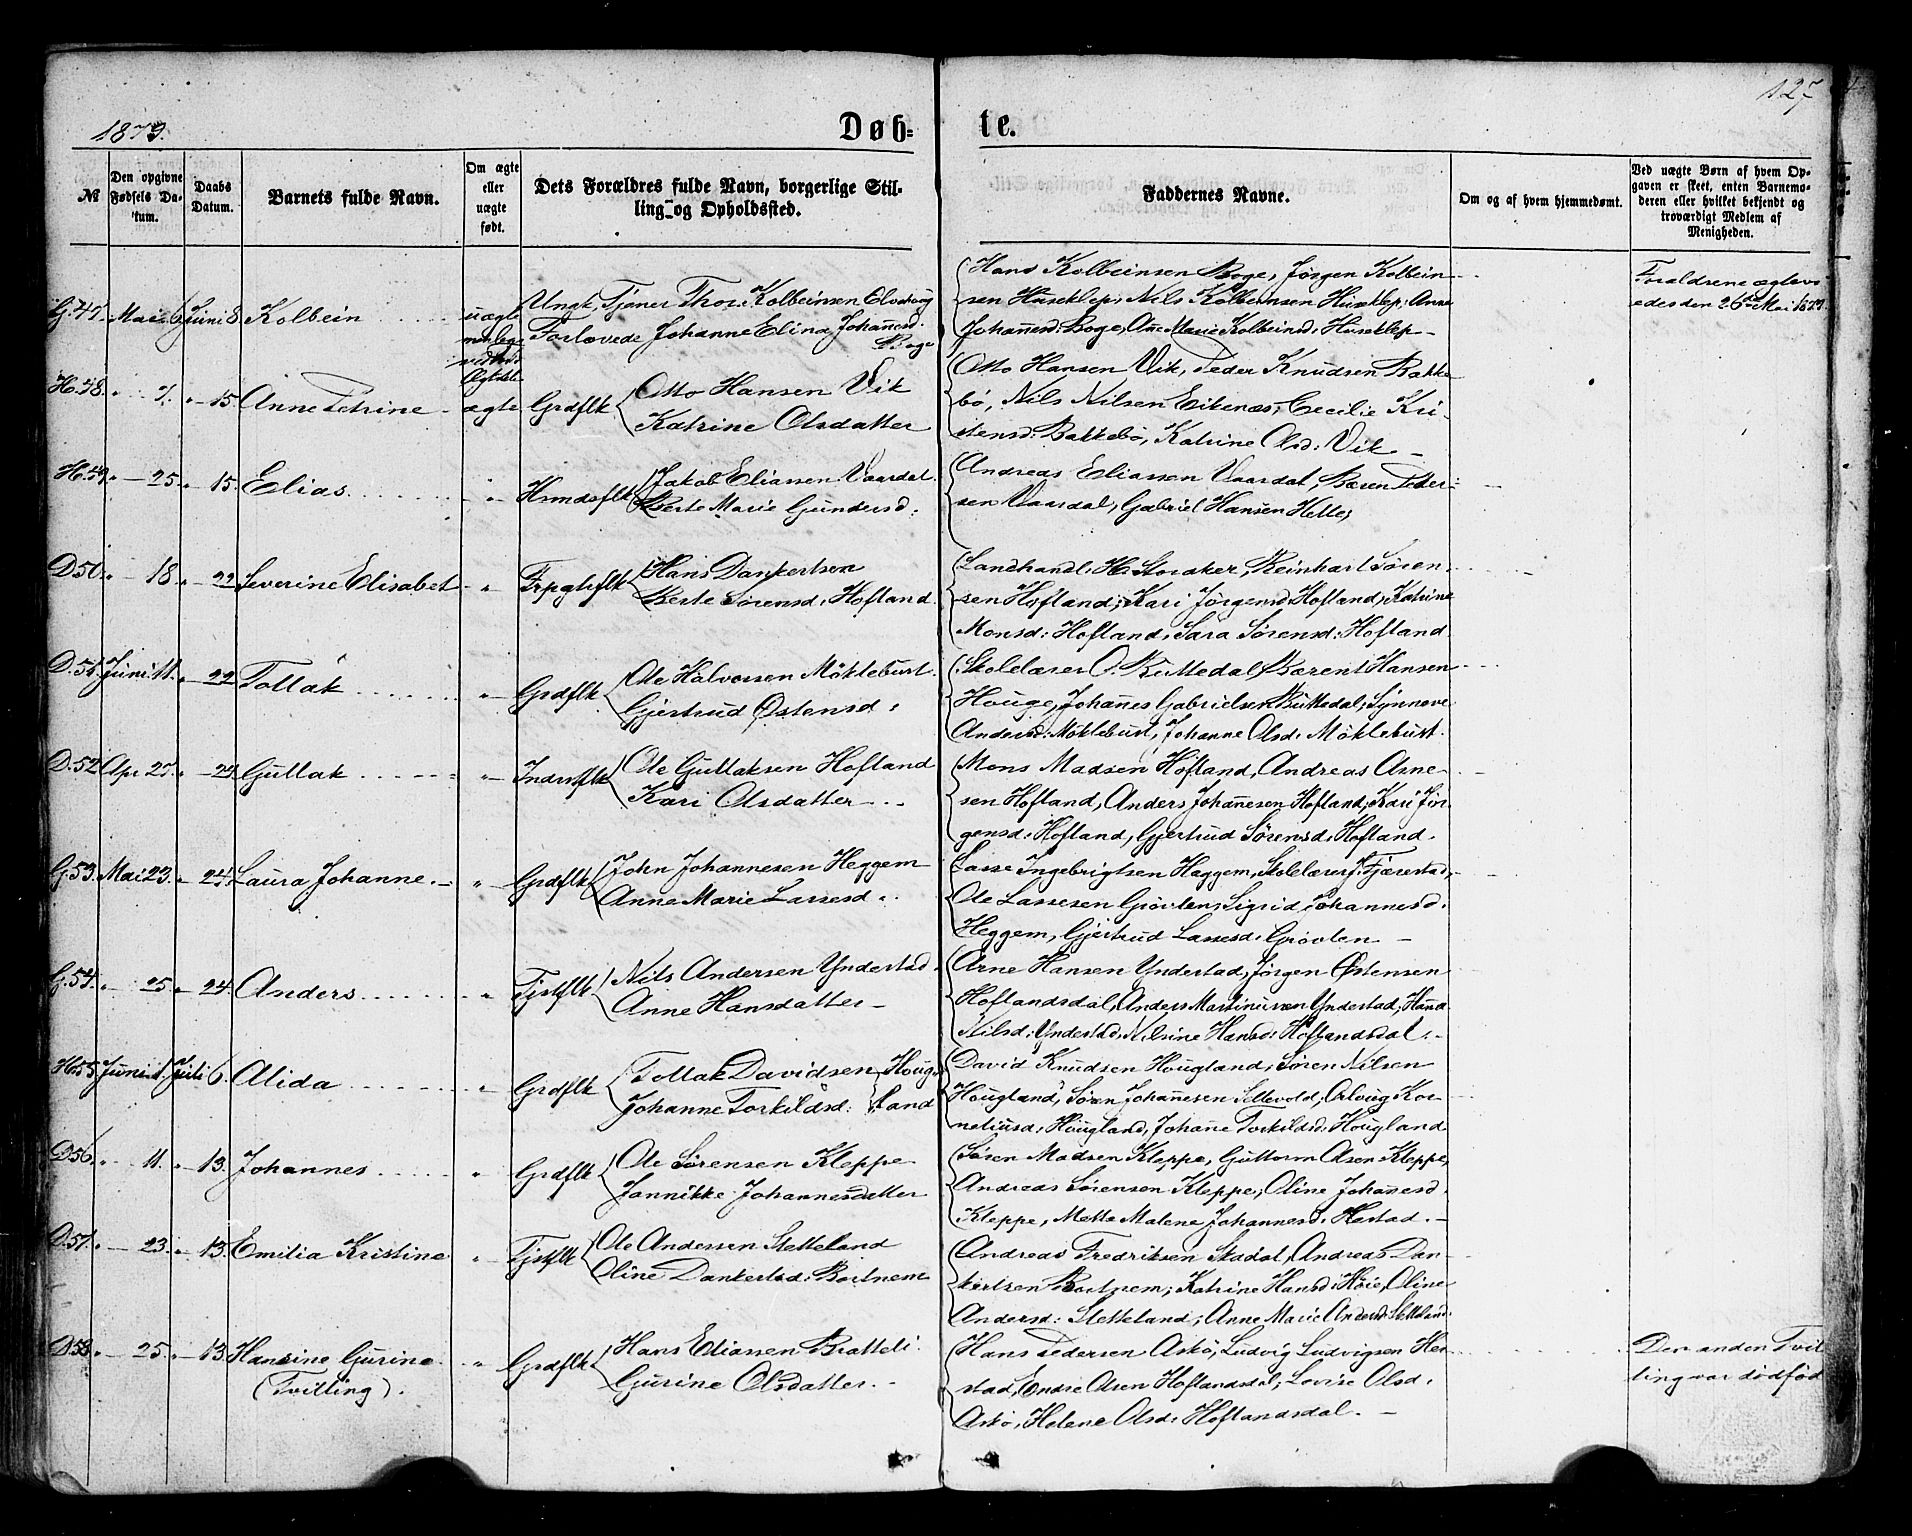 127
1879.
Døb=
te.
№
Den opgivne Fødsels Datum.
Daabs Datum.
Barnets fulde Navn.
Om ægte eller uægte født.
Dets Forældres fulde Navn, borgerlige Stilling og Opholdssted.
Faddernes Navne.
Om og af hvem hjemmedømt.
Ved uægte Børn af hvem Opgaven er skeet, enten Barnemoderen eller hvilket bekjendt og troværdigt Medlem af Menigheden.
G. 47. Mai 6 Juni 8. Kolbein uægte Ungk. Tjener Thor Kolbeinsen
Forlovede Johanne Elina Johannesd. Boge
Hans Kolbeinsen Boge, Jørgen Kolbein-
sen Huseklep, Nils Kolbeinsen Huseklep, Anne
Johannesd: Boge, Ane Marie Kolbeinsd: Huseklep
Forældrene ægtevi
edes den 26de Mai 1879.
H. 48. " 7. " 15. Anne Petrine ægte Grdflk Otto Hansen Vik
Katrine Olsdatter
Otto Hansen Vik, Peder Knudsen Bakke-
bø, Nils Nilsen Eikenæs, Cecilie Kri-
stensd: Bakkebø, Katrine Olsd: Vik
H. 49. " 25. " 15. Elias " Hsmdsflk Jakob Eliassen Vaardal
Berte Marie Gundersd:
Andreas Eliassen Vaardal, Søren Peder-
sen Vaardal, Gabriel Hansen Helle,
D. 50. " 18 " 22 Severine Elisabet " Frpgtrflk Hans Dankertsen
Berte Sørensd: Hofland
Landhandl. H. Storaker, Reinhart Søren-
sen Hofland, Kari Jørgensd: Hofland, Katrine
Monsd: Hofland, Sara Sørensd: Hofland
D. 51. Juni 11. " 22 Tollak " Grdflk Ole Halvorsen Møklebust
Gjertrud Østensd:
Skolelærer O. Kittedal, Bærent Hansen
Houge, Johannes Gabrielsen Kittedal, Synneve
Andersd: Møklebust, Johanne Olsd: Møklebust.
D. 52 Apr 27. " 24 Gullak " Indrstflk Ole Gullaksen Hofland
Kari Olsdatter
Mons Madsen Hofland, Andreas Arne-
sen Hofland, Anders Johannesen Hofland, Kari Jør-
gensd: Hofland, Gjertrud Sørensd: Hofland.
G. 53. Mai 23. " 24. Laura Johanne. " Grdflk John Johannesen Heggem
Anne Marie Lassesd:
Lasse Ingebrigtsen Heggem, Skolelærer J. Fjærestad,
Ole Lassesen Grøvlen, Sigrid Johannesd.
Heggem, Gjertrud Lassesd: Grøvlen
G. 54. " 25. " 24. Anders " Tjstflk Nils Andersen Yndestad
Anne Hansdatter
Arne Hansen Yndestad, Jørgen Østensen
Hoflandsdal, Anders Martinusen Yndestad, Hanna
Nilsd: Yndestad, Nilsine Hansd: Hoflandsdal.
H. 55 Juni 1. Juli 6. Alida " Grdflk Tollak Davidsen Houg-
Johanne Torkildsd: land
David Knudsen Hougland, Søren Nilsen
Hougland, Søren Johannesen Sellevold, Oloug Kor-
neliusd: Hougland, Johanne Torkildsd: Hougland
D. 56. " 11. " 13. Johannes " Grdflk Ole Sørensen Kleppe
Jannikke Johannesdatter
Søren Madsen Kleppe, Guttorm Olsen Kleppe,
Andreas Sørensen Kleppe, Oline Johannesd.
Kleppe, Mette Malene Johannesd: Hestad.
D. 57. " 23. " 13. Emilia Kristine " Tjstflk Ole Andersen Sletteland
Oline Dankertsd: Bortnem
Andreas Fredriksen Skadal, Andreas Dan-
kertsen Bortnem, Katrine Hansd: Høie, Oline
Andersd: Sletteland, Anne Marie Andersd: Sletteland.
D. 58. " 25. " 13. Hansine Gurine " Grdflk Hans Eliassen Bratteli
(Tvilling). Gurine Olsdatter.
Hans Pedersen Askø, Ludvig Ludvigsen He-
stad, Endre Olsen Hoflandsdal, Lovise Olsd.
Askø, Helene Olsd: Hoflandsdal.
Den anden Tvil
ling var dødfød